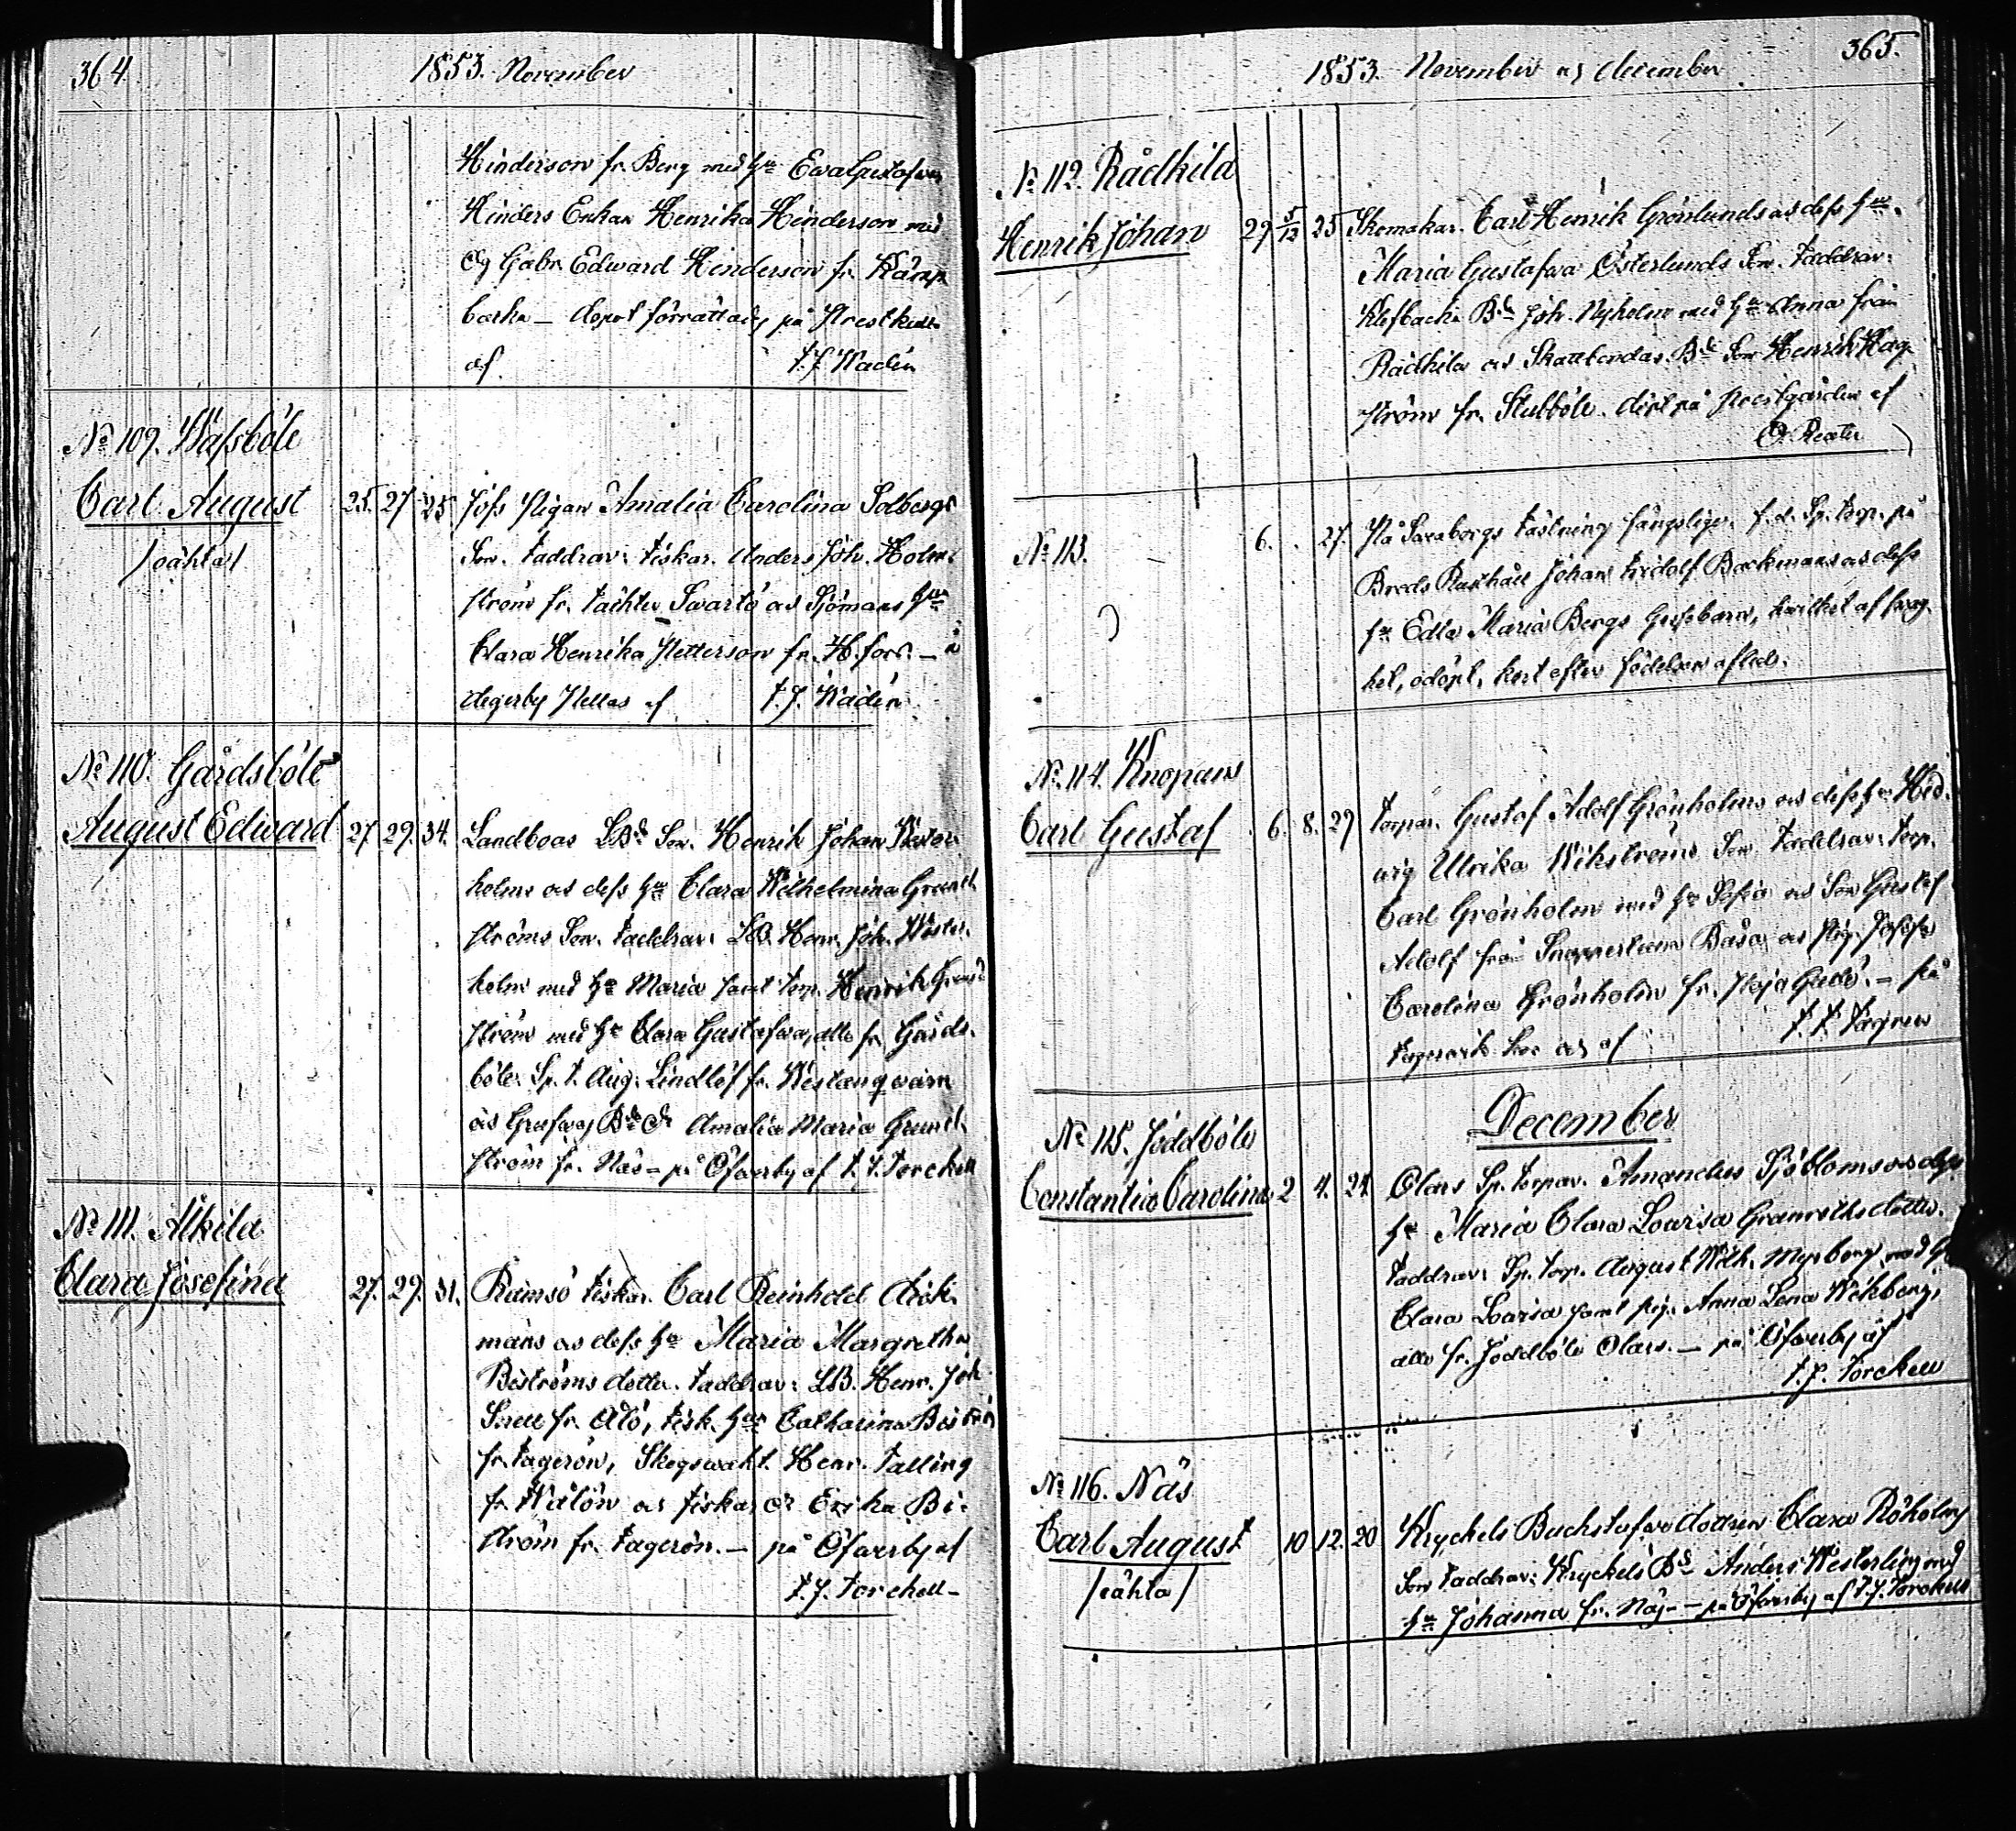 364.
1853. November
Hinderson fr. Berg med hu Ewa Gustafva
Hinders Enkan Henrika Hinderson med
Gabr. Edward Hinderson fr.
backa — dopet förrättades på
af F. J. Wadén
No 109. Wäfsböle
Carl August 25. 27 25 Jófs Pigan Amalia Carolina Solbergs
/oäkta/ Son. Faddrar: Fiskar. Anders Joh. Holm-
ström fr. Svartö och Sjömans hu
Clara Henrika Petterson fr. H.fors. — å
Degerby Pellas af F. J. Wadén
No 110. Gårdsböle
August Edward 27. 29. 34. Landboas LBd Son. Henrik Johan Wester-
holms och dess hu Clara Wilhelmina Grund-
ströms Son. Faddrar: LB. Henr. Joh. Wester-
holm med hu Maria samt Torp. Henrik Grund-
ström med hu Clara Gustafva, alla fr. Gårds-
böle. Sp. T. Aug. Lindlöf fr. Westanqvarn
och Bds Dr Amalia Maria Grund-
ström fr. Näs — på Öfverby af F. J. Forchell
No 111. Alkila
Clara Josefina 27. 29. 31. Ramsö Fiskar. Carl Reinhold Ack-
mans och dess hu Maria Margretha
Biströms dotter. Faddrar: LB. Henr. Joh.
fr. Älö, Fisk. hu Catharina Biström
fr. Fagerön, Skogswakt. Henr. Falling
fr. Wålön och Fiskar Dr Erika Bi-
ström fr. Fagerön. — på Öfverby af
F. J. Forchell —
365.
1853. November och December
No 112. Rådkila
Henrik Johan 29 5/12 25 Skomakar. Carl Henrik Grönlunds och dess hu
Maria Gustafva Österlunds Son. Faddrar:
Klefbacka Bd Joh. Nyholm med hu Anna från
Rådkila och Skattbondas Bd Son Henrik Hag-
ström fr. Stubböle. döpt på Prestgården af
No 113. — 6. . 27. På Sveaborgs Fästning fängslige f.d. Sp. torp. på
Breds Rusthåll Johan Fridolf Backmans och dess
hu Edla Maria Bergs Gossebarn, hvilket af svag-
het, odöpt, kort efter födelsen afled.
No 114. Knopars
Carl Gustaf 6. 8. 29 Torpar. Gustaf Adolf Grönholms och dess hu Hed-
vig Ulrika Wikströms Son. Faddrar: Torp.
Carl Grönholm med hu Sofia och Son Gustaf
Adolf från Båsa och Pig. Josefa
Carolina Grönholm fr. — på
Fagervik af
December
No 115. Joddböle
Constantia Carolina 2 4. 24. Olars Sp. torpar. Amandus Sjöbloms och dess
hu Maria Clara Lovisa Granroths dotter.
Faddrar: Sp. torp. August Wilh. Myrberg med hu
Clara Lovisa samt pig. Anna Lena Wikberg,
alla fr. Joddböle Olars. — på Öfverby af
F. J. Forchell
No 116. Näs
Carl August 10 12. 20 Kryckels Backstufvo dottren Clara Röholms
/oäkta/ Son Faddrar: Kryckels Bd Anders Westerling med
hu Johanna fr. Näs — på Öfverby af F. J. Forchell